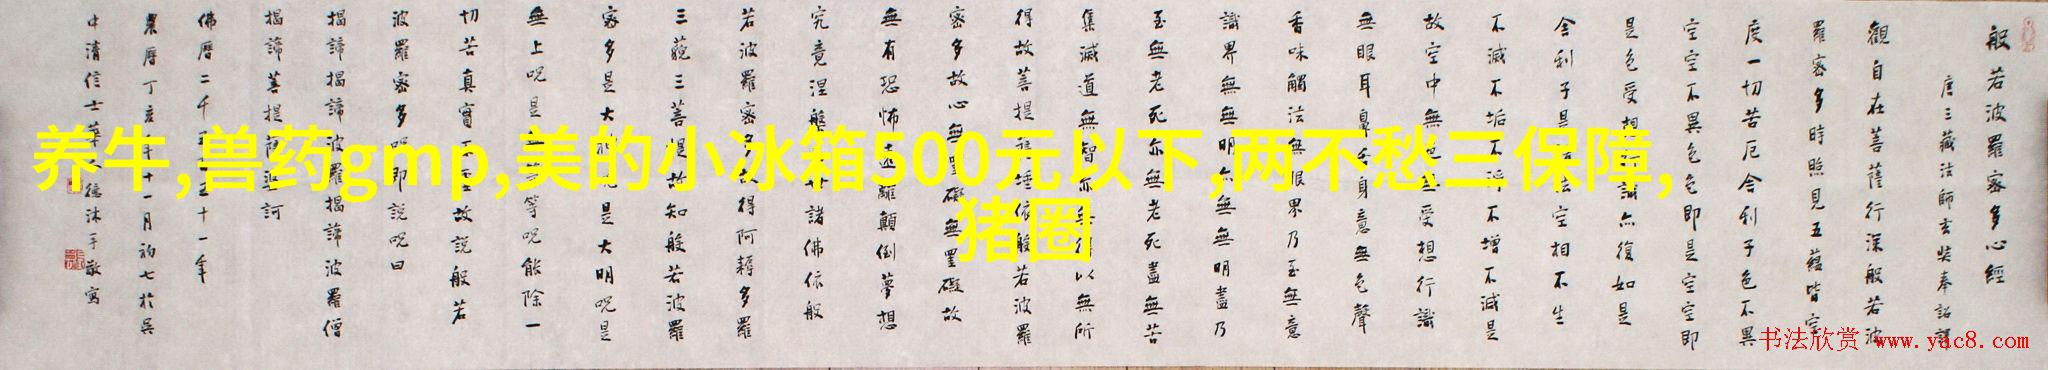 般若波羅密多心經
唐三藏法師玄奘奉詔譯
觀自在菩薩行深般若波
羅密多時照見五蘊皆空
度一切苦厄舍利子色不異
空空不異色色即是空空即
是色受想行識亦復如是
舍利子是諸法空相不生
不滅不垢不淨不增不減是
故空中無色無受想行識
無眼耳鼻舌身意無色聲
香味觸法無眼界乃至無意
識界無無明亦無無明盡乃
至無老死亦無老死盡無苦
集滅道無智亦無得以無所
得故菩提薩埵依般若波羅
密多故心無罣礙無罣礙故
無有恐怖遠離顛倒夢想
究竟涅槃世諸佛依般
若波羅密多故得阿耨多羅
三藐三菩提故知般若波羅
密多是大神咒是大明咒是
無上呪是無等呪能除一
切苦真實不虛故說般若
波羅密多呪即說呪曰
揭諦揭諦波羅揭諦波羅僧
揭諦菩提薩婆訶
佛曆二千五百五十一年
農曆丁亥年十一月初七於吳
中清信士華人德沐手敬寫
养牛,兽药gmp,美的小冰箱500元以下,两不愁三保障,
猪圈
书法欣赏 www.yac8.com